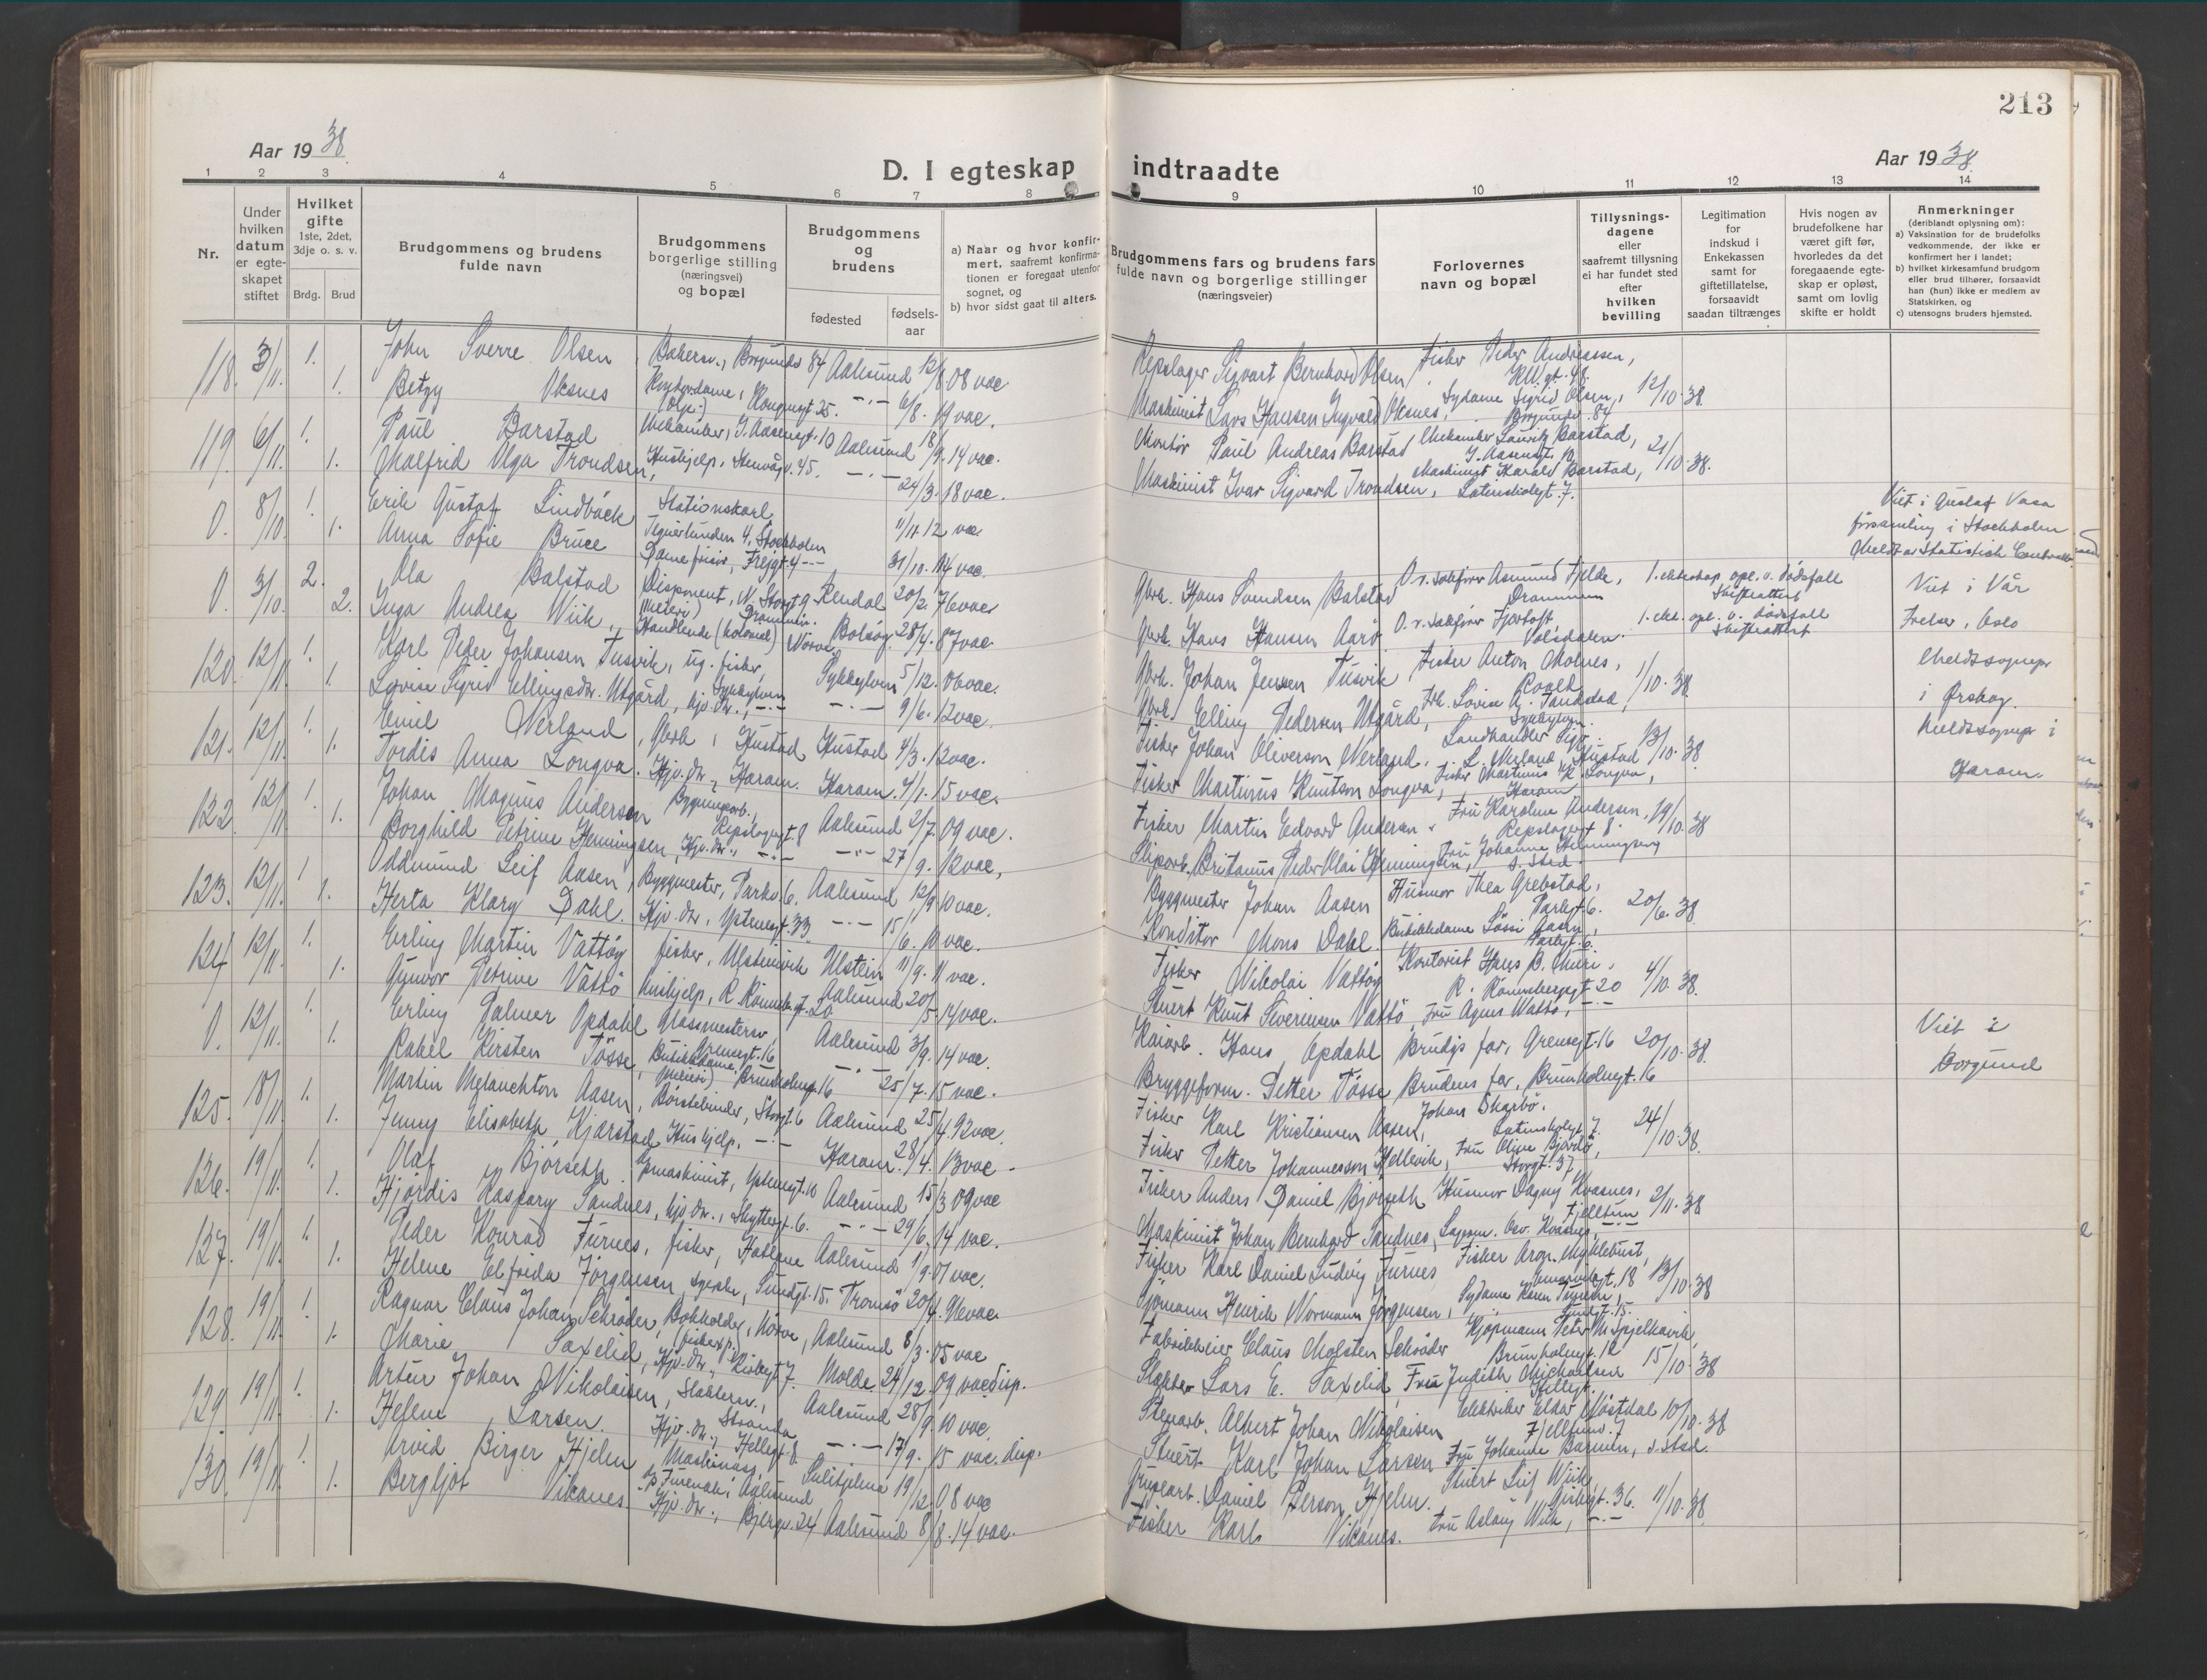 213
Aar 1938
Aar 1938
D. I egteskap indtraadte
1 2 3 4 5 6 7 8 9 10 11 12 13 14
Nr.
Under hvilken datum er egteskapet stiftet
Hvilket gifte
1ste, 2det, 3dje o. s. v.
Brdg. Brud
Brudgommens og brudens
fulde navn
Brudgommens
borgerlige stilling
(næringsvei)
og bopæl
Brudgommens
og
brudens
fødested
fødsels-
aar
a) Naar og hvor konfir-
mert, saafremt konfirma-
tionen er foregaat utenfor
sognet, og
b) hvor sidst gaat til alters.
Brudgommens fars og brudens fars
fulde navn og borgerlige stillinger
(næringsveier)
Forlovernes
navn og bopæl
Tillysnings-
dagene
eller
saafremt tillysning
ei har fundet sted
efter
hvilken
bevilling
Legitimation
for
indskud i
Enkekassen
samt for
giftetillatelse,
forsaavidt
saadan tiltrænges
Hvis nogen av
brudefolkene har
været gift før,
hvorledes da det
foregaaende egte-
skap er opløst,
samt om lovlig
skifte er holdt
Anmerkninger
(deriblandt oplysning om):
a) Vaksination for de brudefolks
vedkommende, der ikke er
konfirmert her i landet;
b) hvilket kirkesamfund brudgom
eller brud tilhører, forsaavidt
han (hun) ikke er medlem av
Statskirken, og
c) utensogns bruders hjemsted.
118. 3/11. 1. John Sverre Olsen, Bakersv., Borgundv 84 Aalesund 12/8 08 vac. Repslager Sigvart Bernhard Olsen, Fisker Peder Andreassen,
1. Betzy Oksnes Kongensgt. 25. -"- 6/8. 19 vac. Maskinist Lars Hansen Ingvald Oksnes, Sydame Sigrid Olsen, Borgundv. 84 12/10 38.
119. 6/11. 1. Paul Barstad Mekaniker, I. Aasensgt. 10 Aalesund 18/9. 14 vac. Montör Paul Andreas Barstad Mekaniker Lauritz Barstad, I. Aasensgt. 10
1. Malfrid Olga Trondsen, Hushjelp, Stenvågv. 45. -"- 24/3. 18 vac. Maskinist Ivar Sigvard Trondsen, Maskinist Harald Barstad, Latinskolegt. 7. 21/10 38.
0. 8/10. 1. Erik Gustaf Lindbäck Stationskarl, Tegnérlunden 4, Stockholm 11/11 12 vac Viet i Gustaf Vasa
1. Anna Sofie Bruce Damefrisör, Frejgt. 4 -"- 31/10. 14 vac. församling i Stockholm
Meldt av Statistisk Centralb.
0. 3/10. 2. Ola Balstad Disponent, N. Storgt 9 Drammen. Rendal 20/2. 76 vac Gbrk. Hans Svendsen Balstad O.r. sakförer Asmund Fjelde, Drammen 1. ekteskap opl. v. dödsfall Skifteattest Viet i Vår
2. Inga Andrea Wiik, Handlende (kolonial) Nörve Bolsöy 28/4. 87 vac. Gbrk. Hans Hansen Aarö O.r. sakförer Fjörtoft, Volsdalen. 1. ekt. opl. v. dödsfall Skifteattest Frelser, Oslo
120. 12/11. 1. Karl Peder Johansen Tusvik, ug. fisker, Sykkylven Sykkylven 5/12. 06 vac. Gbrk. Johan Jensen Tusvik Fisker Anton Molnes, Roald Meldt sognepr
1. Lovise Sigrid Ellingsdtr. Utgård, hjv. dtr., -"- -"- 9/6. 12 vac. Gbrk. Elling Pedersen Utgård, Frk. Lovise A. Tandstad, Sykkylven. 1/10 38. i Ørskog.
121. 12/11. 1. Emil Nerland, Gbrk, Hustad Hustad 4/3. 12 vac. Fisker Johan Oliverson Nerland. Landhandler L. Nerland, Hustad 13/10 38 Meldt sognepr i
1. Tordis Anna Longva. Hjv. dtr., Haram. Haram. 4/1. 15 vac. Fisker Martinus Knutson Longva, Fisker Martinus K. Longva, Haram Haram.
122. 12/11. 1. Johan Magnus Andersen Bygningsarb., Repslagergt. 8 Aalesund 2/7. 09 vac. Fisker Martin Edvard Andersen. Fru Karoline Andersen, Repslagergt 8. 19/10 38
1. Borghild Petrine Henningsen, Hjv. dtr., -"- -"- 27/9. 12 vac. Sliparb. Britanus Peder Olai Henningsen, Fru Johanne Henningsen s. sted.
123. 12/11. 1 Oddmund Leif Aasen, Byggmester, Parkv. 6. Aalesund 12/9 10 vac. Byggmester Johan Aasen Husmor Thea Grebstad, Parkgt. 6. 20/6. 38
1. Herta Klary Dahl. Hjv. dtr., Ystenesgt. 33. -"- 15/6. 10 vac. Konditor Mons Dahl Butikkdame Lössi Aasen, Parkgt. 6.
124 12/11. 1. Erling Martin Vattöy fisker, Ulsteinvik Ulstein 11/9. 11 vac. Fisker Nikolai Vattöy Kontorist Hans B. Meli, R. Rönnebergsgt 20 4/10 38.
1. Gunvor Petrine Vattö Hushjelp, R. Rönnebgt. 20 Aalesund 20/5 14 vac. Stuert Knut Severinsen Vattö, Fru Agnes Wattö, -"-
0. 12/11. 1. Erling Palmer Opdahl Glassmestersv., Grensegt. 16 Aalesund 3/9. 14 vac. Kaiarb. Hans Opdahl Brudgs far, Grensegt. 16 20/10 38. Viet i
1. Rakel Kirsten Tösse, Butikkdame (meieri) Brunholmgt. 16 -"- 25/7. 15 vac. Bryggeform. Petter Tösse Brudens far, Brunholmgt. 16 Borgund
125. 18/11 1. Martin Melanchton Aasen, Börstebinder, Storgt. 6 Aalesund 25/4. 92 vac. Fisker Karl Kristiansen Aasen, Johan Skarbö, Latinskolegt. 7. 24/10 38.
1. Jenny Elisabeth Kjærstad Hushjelp, -"- Haram. 28/4. 13 vac. Fisker Petter Johannesson Hellevik, Fru Oline Bjørlö, Storgt. 37,
126. 19/11. 1. Olaf Björseth maskinist, Ystenesgt. 10 Aalesund 15/3 09 vac Fisker Anders Daniel Björseth Husmor Dagny Kvasnes, Fjelltun 2/11. 38
1. Hjördis Kaspary Sandnes, hjv. dtr., Skyttergt. 6. -"- 29/6. 14 vac. Maskinist Johan Bernhard Sandnes, Kvasnes, -"-
127. 19/11. 1. Peder Konrad Furnes, fisker, Hatlane Aalesund 1/9. 07 vac. Fisker Karl Daniel Ludvig Furnes Fisker Myklebust, 18 13/10 38
1. Helene Elfrida Jörgensen, Sundgt. 15. Tromsö 20/4. 96 vac. Sjömann Henrik Normann Jörgensen, Sydame Sundgt. 15.
128. 19/11. 1. Ragnar Claus Johan Schröder, Bokholder, Nörve, Aalesund 8/3. 05 vac Fabrikkeier Claus Molsten Schröder Kjöpmann Peter M. Spjelkavik, Brunholmgt. 12 15/10. 38
1. Marie Saxelid, Hjv. dtr., Kirkegt 7. Molde. 24/12. 09 vac. disp. Slakter Lars E. Saxelid, Fru Judith Michaelsen
129. 19/11. 1. Artur Johan Nikolaisen, Slaktersv., Stranda Aalesund 28/9. 10 vac. Stenarb. Albert Johan Nikolaisen Elektriker Eldar Löstdal Fjelltunv. 7 10/10. 38
1. Helene Larsen. Hjv. dtr., Hellegt. 8 -"- 17/9. 15 vac. disp. Stuert Karl Johan Larsen Fru Johanne Barmen, s. sted.
130. 19/11. 1. Arvid Birger Hjelm Maskinass., Aalesund Sulitjelma 19/12. 08 vac Gruvearb. Daniel Person Hjelm. Stuert Leif Wiik, 36. 11/10. 38
1. Bergljot Vikanes Hjv. dtr., Bjergv. 24 Aalesund 8/8. 14 vac. Fisker Karl Vikanes. Fru Aslaug Wiik, -"-